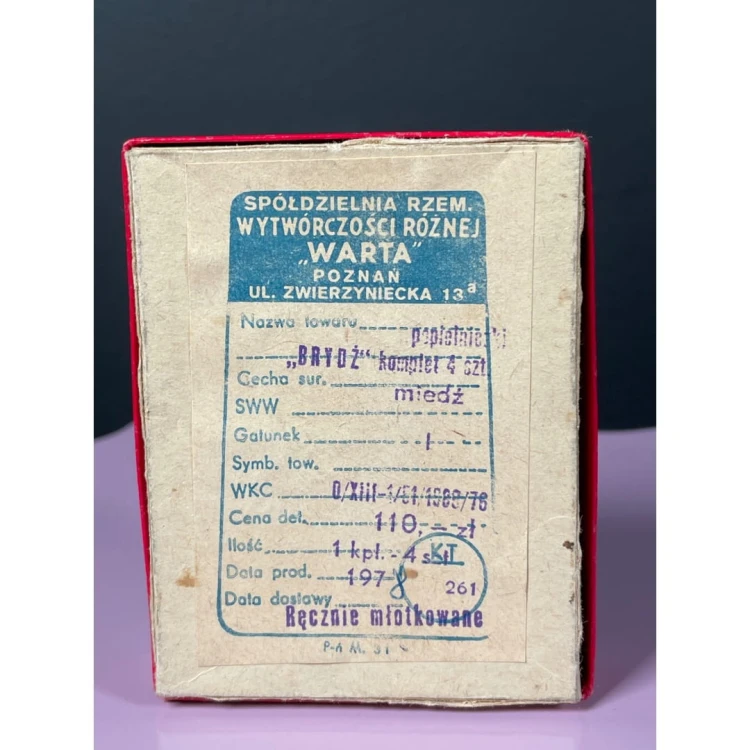 SPÓŁDZIELNIA RZEM.
WYTWÓRCZOŚCI RÓŻNEJ
„WARTA"
POZNAŃ
UL. ZWIERZYNIECKA 13a
Nazwa towaru popielniczki
„BRYDŹ" komplet 4 szt
Cecha sur. miedź
SWW
Gatunek I
Symb. tow.
WKC
Cena det. 110,- zł
Ilość 1 kpl. - 4 szt
Data prod. 1978
KT
261
Data dostawy
Ręcznie młotkowane